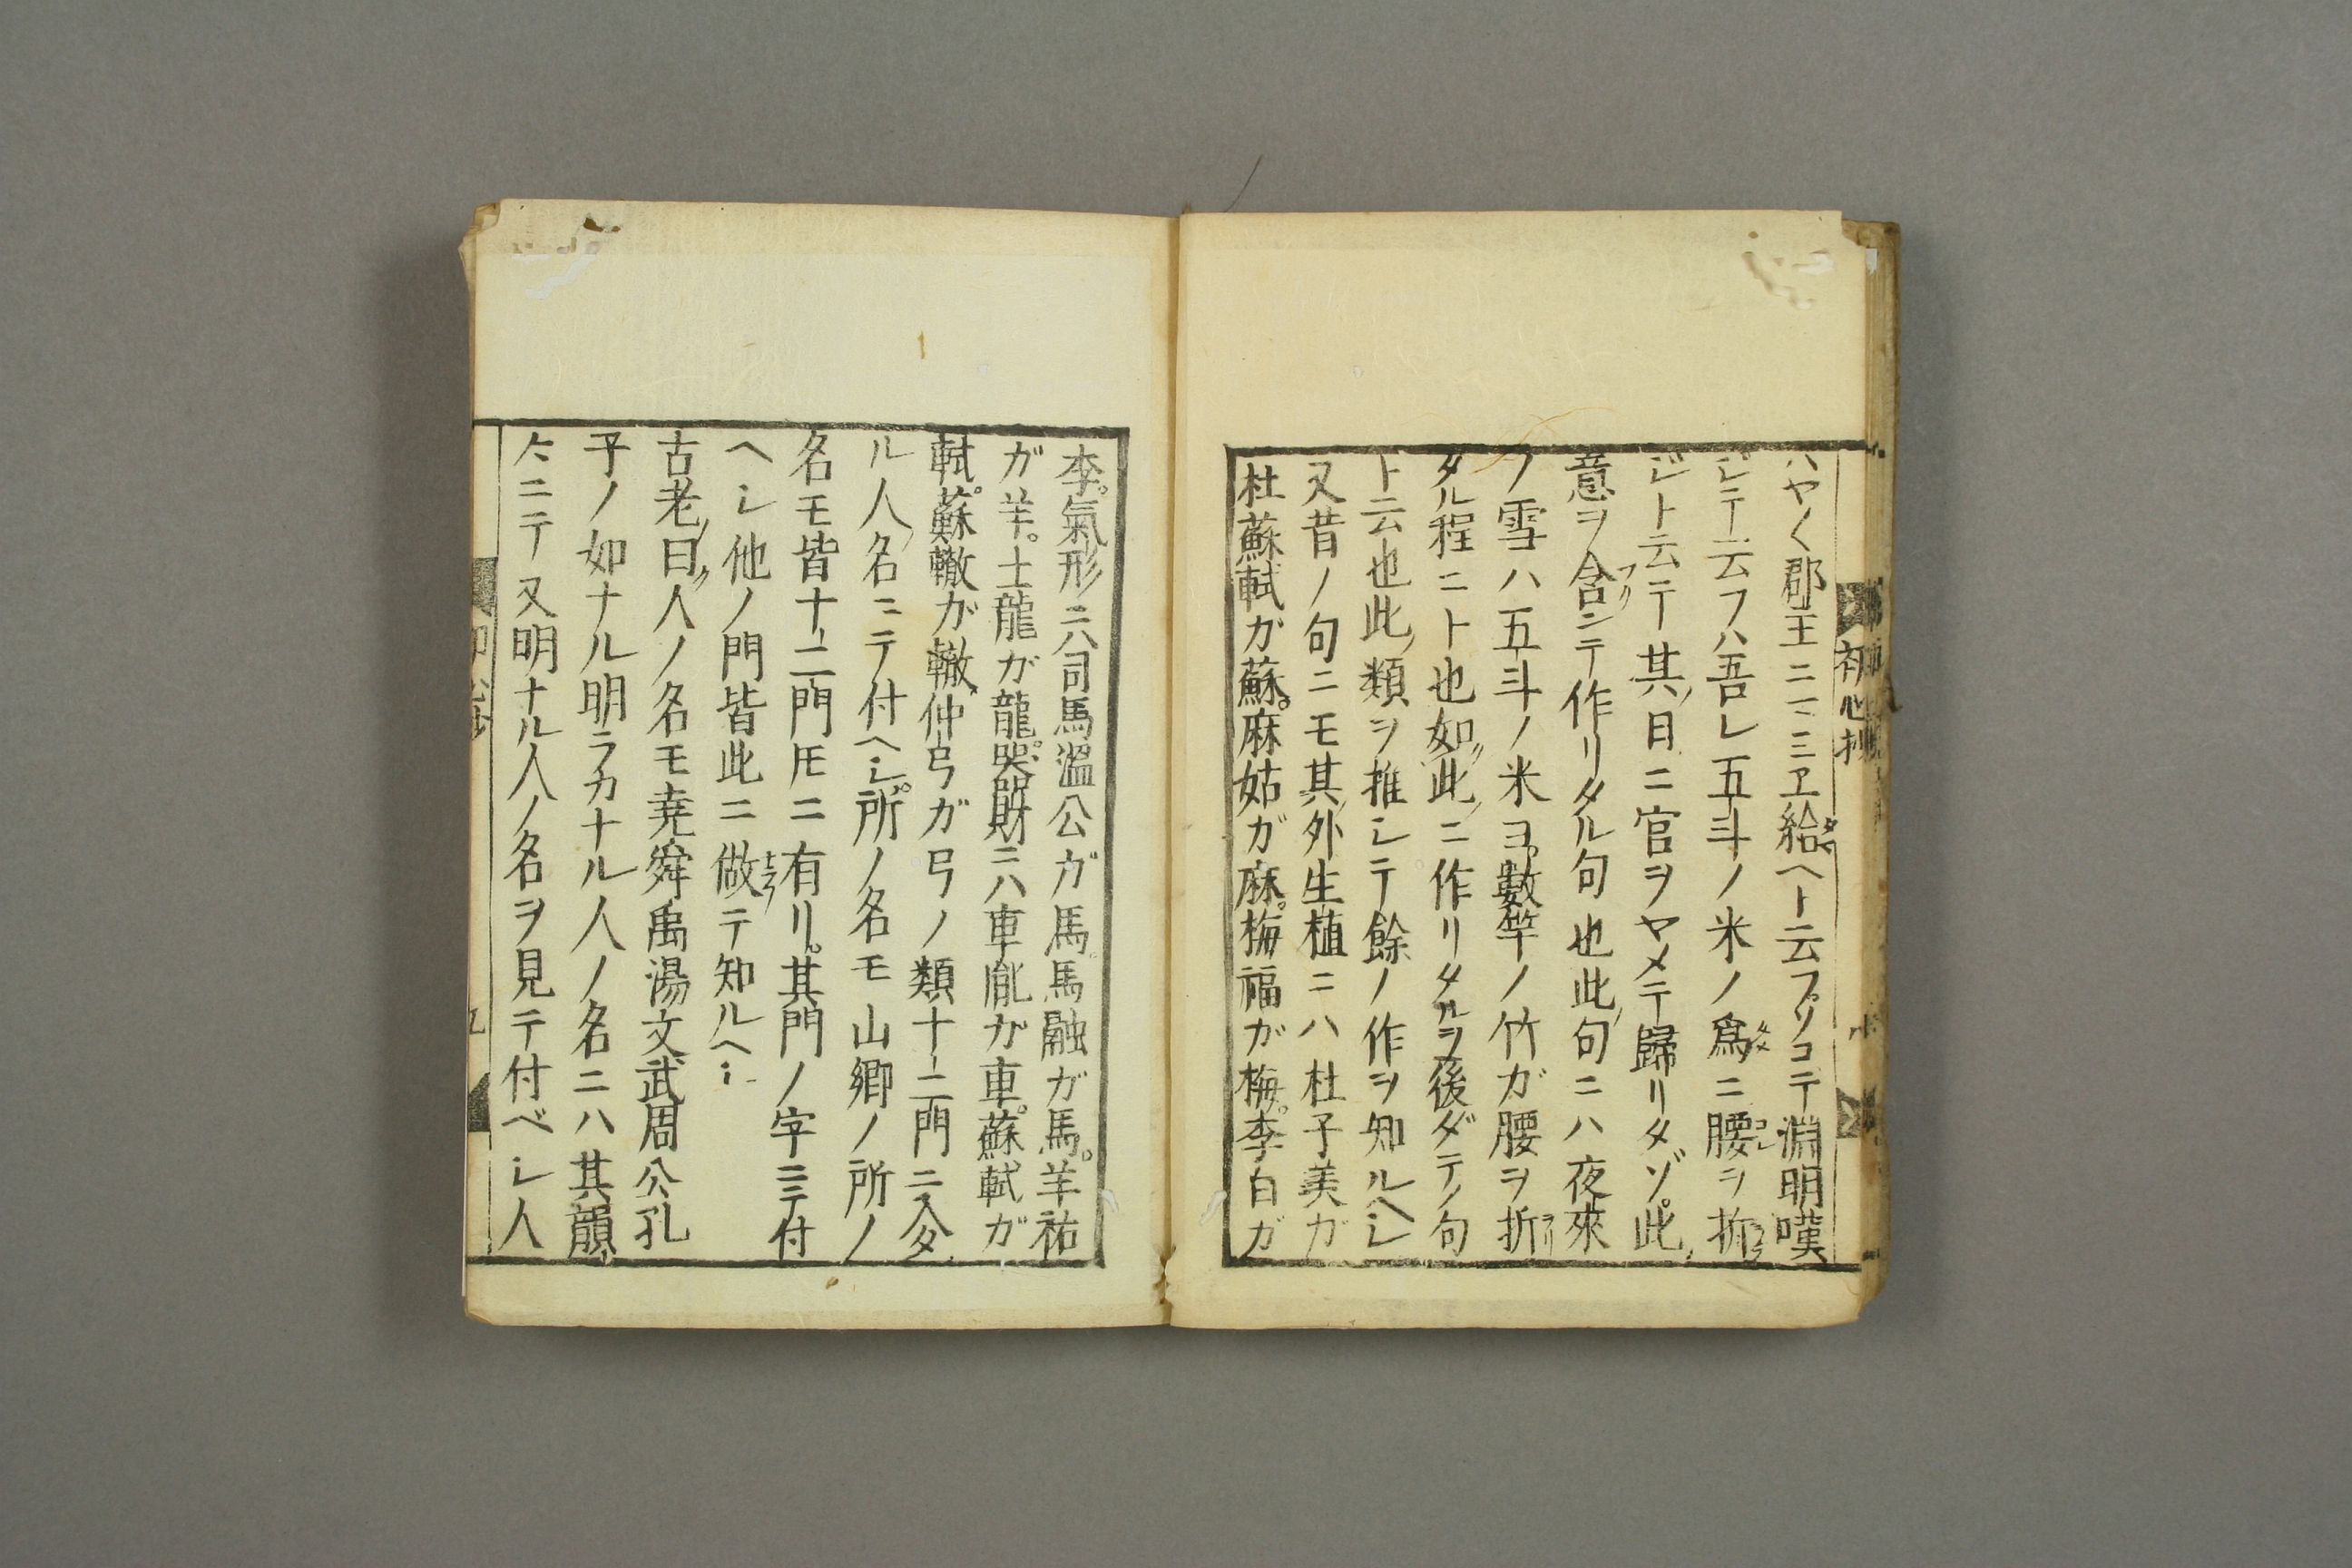 初心抄
ハヤ〱郡王ニマミヱ給ヘト云フソコテ淵明嘆
ジテ云フハ吾レ五斗ノ米ノ爲ニ腰ヲ折
ジト云テ其ノ日ニ官ヲヤメテ歸リタゾ此ノ
意ヲ含ンテ作リタル句也此ノ句ニハ夜來
ノ雪ハ五斗ノ米ヨ數竿ノ竹ガ腰ヲ折
タル程ニト也如此ノニ作リタルヲ後ダテノ句
ト云也此ノ類ヲ推シテ餘ノ作ヲ知ルヘシ
又昔ノ句ニモ其ノ外生植ニハ杜子美ガ
杜蘇軾ガ蘇麻姑ガ麻梅福ガ梅李白ガ
李氣形ニハ司馬溫公ガ馬馬融ガ馬羊祐
ガ羊士龍ガ龍器財ニハ車胤ガ車蘇軾ガ
軾蘇轍ガ轍仲弓ガ弓ノ類十二門ニ入タ
ル人ノ名ニテ付ヘシ所ノ名モ山郷ノ所ノ
名モ皆十二門𪜈ニ有リ其門ノ字ニテ付
ヘシ他ノ門皆此ニ倣テ知ルヘシ
古老ノ曰ク人ノ名モ堯舜禹湯文武周公孔
子ノ如ナル明ラカナル人ノ名ニハ其韻ノ
仄ニテ又明ナル人ノ名ヲ見テ付ベシ人